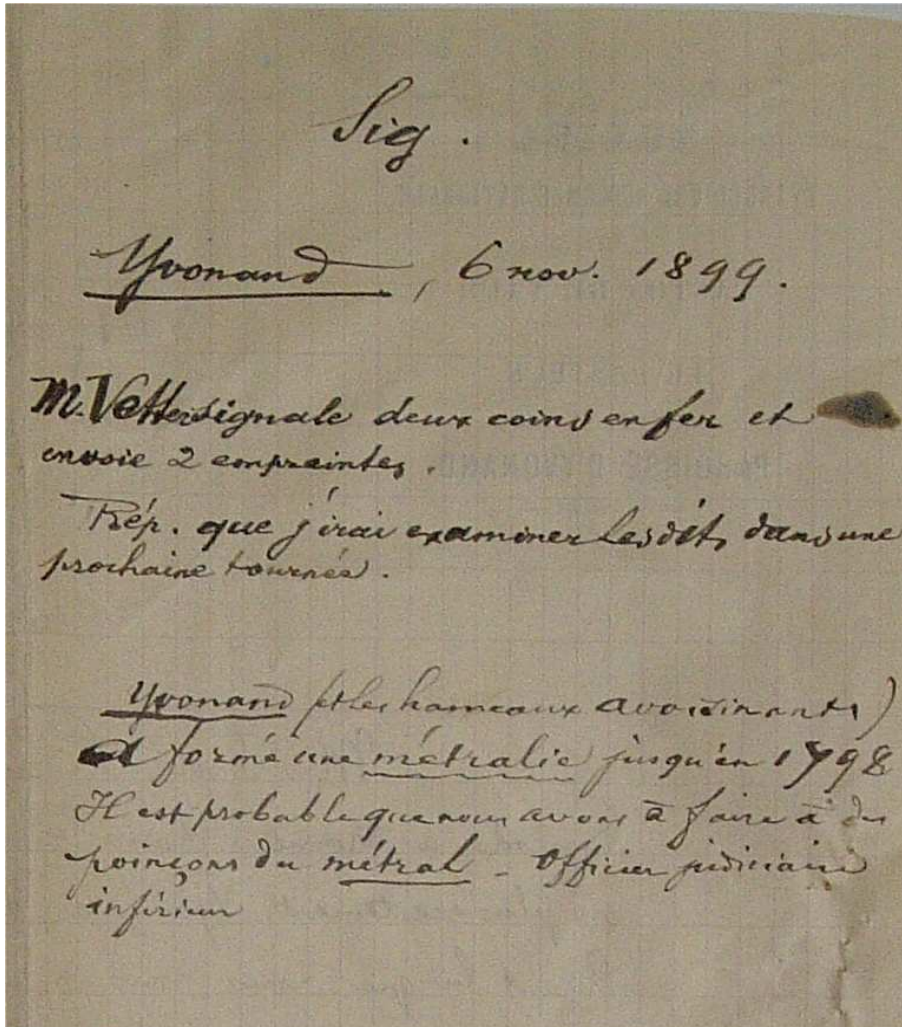 Sig.
Yvonand, 6 nov. 1899.
M. Vetter signale deux coins en fer et
envoie 2 empreintes.
Rép. que j'irai examiner les dits dans une
prochaine tournée.
Yvonand (et les hameaux avoisinants)
a formé une métralie jusqu'en 1798
Il est probable que nous avons à faire à des
poinçons du métral - Officier judiciaire
inférieur